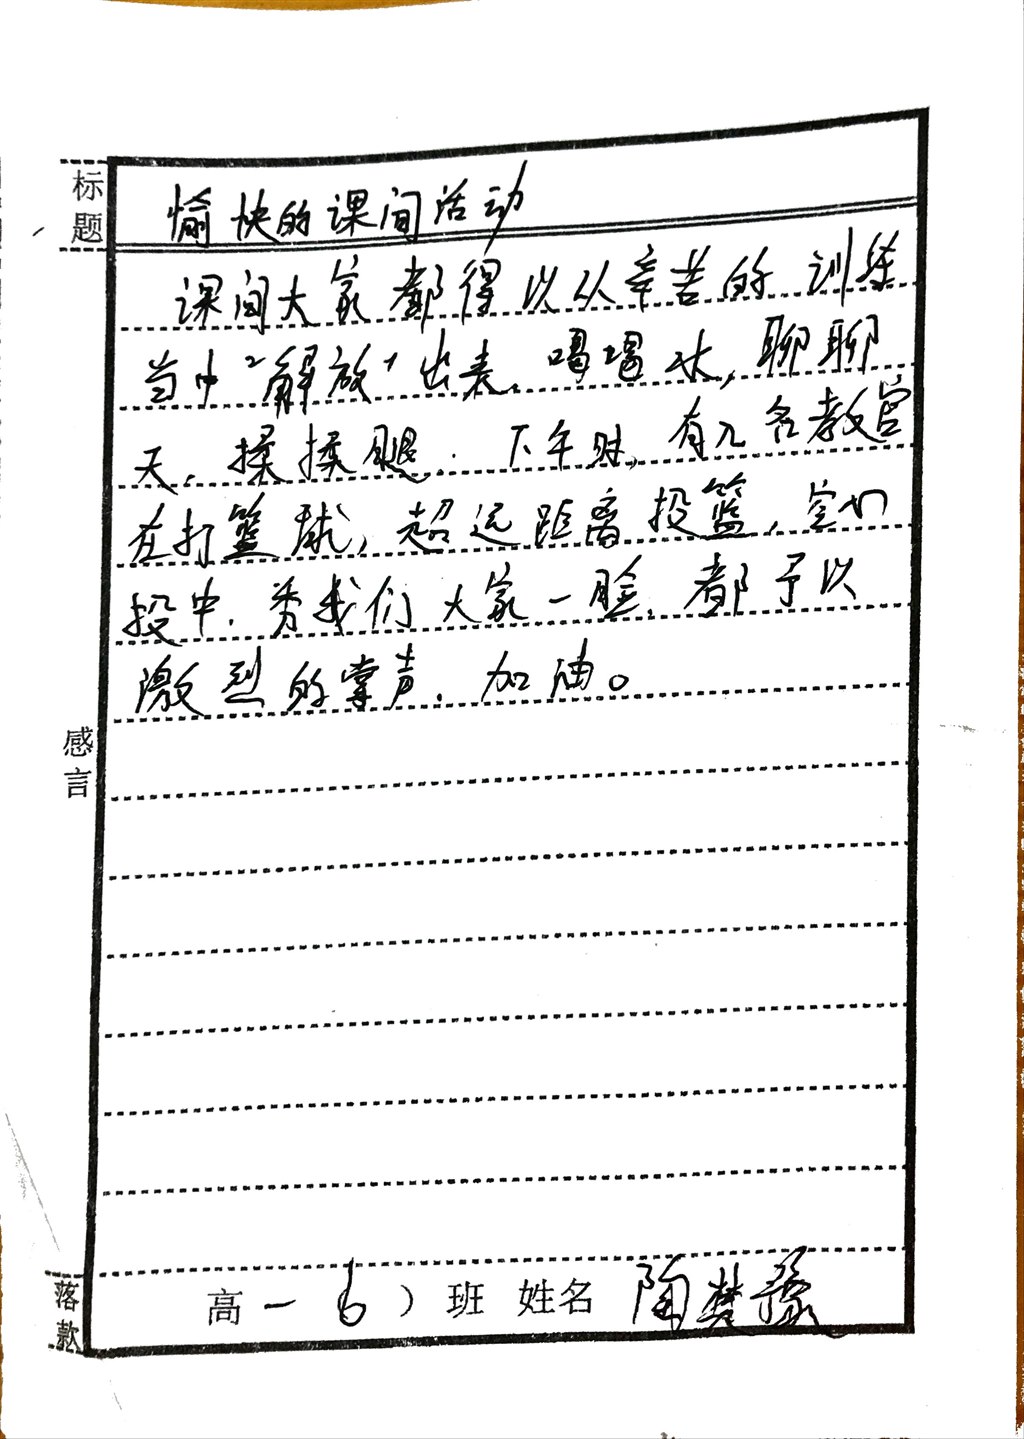 标题
愉快的课间活动
课间大家都得以从辛苦的训练
当中“解放”出来。喝喝水,聊聊
天,揉揉腿.下午时,有几名教官
在打篮球,超远距离投篮,空心
投中.秀我们大家一脸,都予以
激烈的掌声.加油。
感言
落款
高一 6）班 姓名 陶梦